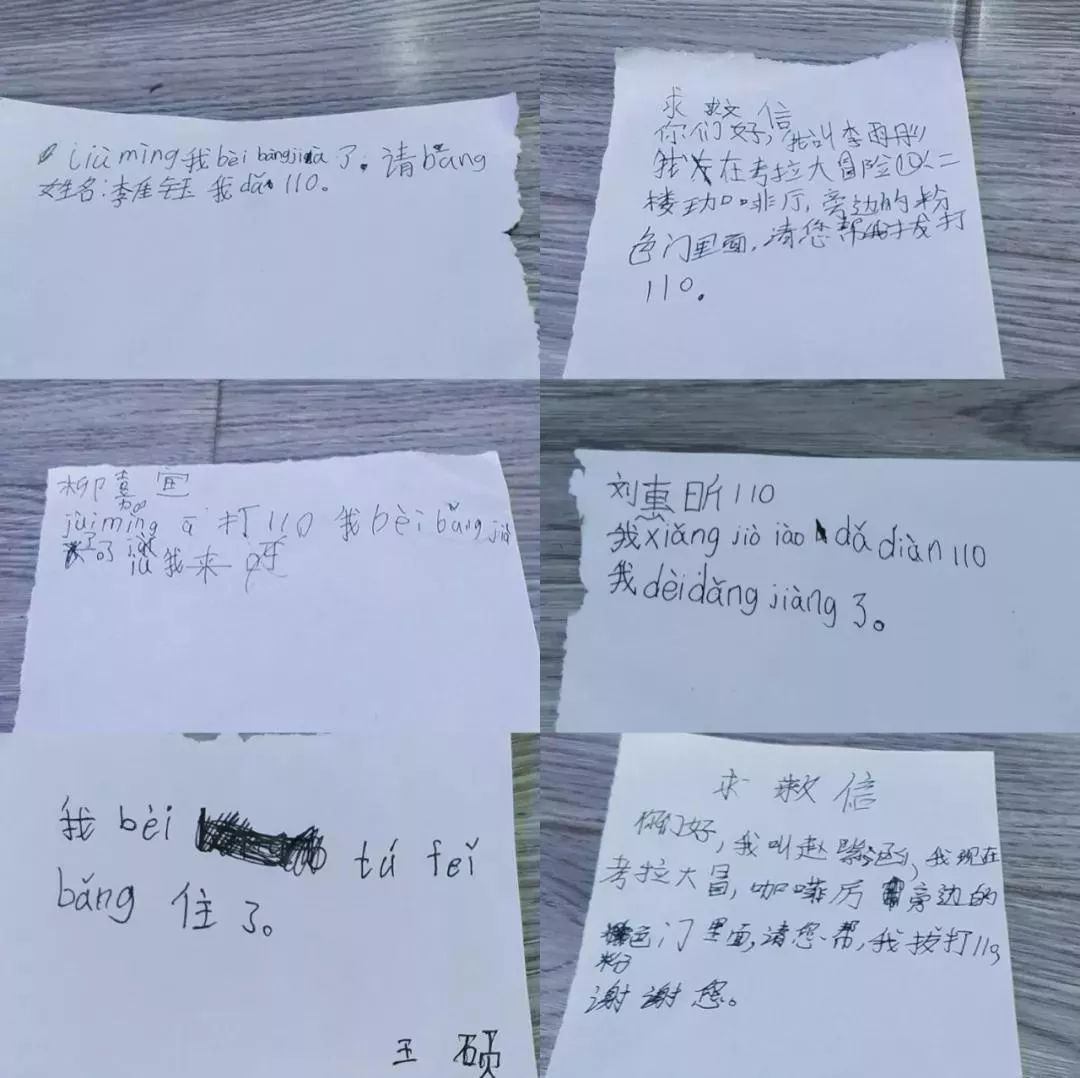 jiù mìng 我 bèi bǎng jià 了。请 bāng
姓名:李隹钰 我 dǎ 110。
求救信
你们好,我叫李雨彤
我在考拉大冒险二
楼动咖啡厅,旁边的粉
色门里面,请您帮我拔打
110。
柳熹宜
jiùi mìng ā 打110 我 bèi bǎng jià
了。 jiù 我来呀
刘惠昕110
我 xiǎng jiò iào dǎ diàn 110
我 dèi dǎng jiàng 了。
我 bèi tú feǐ
bǎng 住了。
王硕
求救信
你们好,我叫赵涵,我现在
考拉大冒,咖啡厅旁边的
粉色门里面,请您帮,我拔打119
谢谢您。